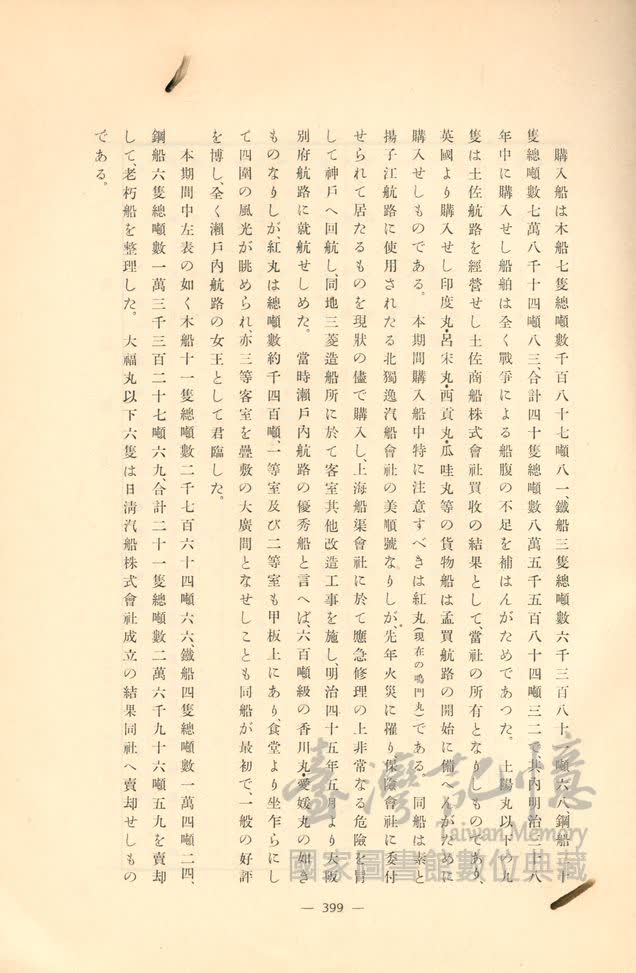 購入船は木船七隻總噸數千百八十七噸八一、鐵船三隻總噸數六千三百八十一噸六八鋼船三十
隻總噸數七萬八千十四噸八三、合計四十隻總噸數八萬五千五百八十四噸三二で其內明治三十八
年中に購入せし船舶は全く戰爭による船腹の不足を補はんがためであつた。土陽丸以下の九
隻は土佐航路を經營せし土佐商船株式會社買收の結果として、當社の所有となりしものであり、
英國より購入せし印度丸・呂宋丸・西貢丸・瓜哇丸等の貨物船は孟買航路の開始に備へんがために
購入せしものである。本期間購入船中特に注意すべきは紅丸(現在の鳴門丸)である 同船は素と
揚子江航路に使用されたる北獨逸汽船會社の美順號なりしが、先年火災に罹り、保險會社に委付
せられて居たるものを現狀の儘で購入し、上海船渠會社に於て應急修理の上非常なる危險を冒
して神戶へ回航し、同地三菱造船所に於て客室其他改造工事を施し、明治四十五年五月より大阪
別府航路に就航せしめた。當時瀨戶內航路の優秀船と言へば、六百噸級の香川丸・愛媛丸の如き
ものなりしが、紅丸は總噸數約千四百噸、一等室及び二等室も甲板上にあり、食堂より坐乍らにし
て四圍の風光が眺められ、亦三等客室を疊敷の大廣間となせしことも同船が最初で、一般の好評
を博し、全く瀨戶內航路の女王として君臨した。
本期間中左表の如く木船十一隻總噸數二千七百六十四噸六六、鐵船四隻總噸數一萬四噸二四、
鋼船六隻總噸數一萬三千三百二十七噸六九、合計二十一隻總噸數二萬六千九十六噸五九を賣却
して、老朽船を整理した。大福丸以下六隻は日淸汽船株式會社成立の結果同社へ賣却せしもの
である。
— 399 —
臺灣記憶
Taiwan Memory
國家圖書館數位典藏